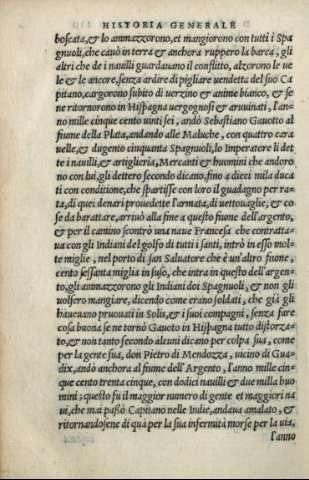 HISTORIA GENERALE
boscata, & lo ammazzorono, et mangiorono con tutti i Spa
gnuoli, che cauò in terra & anchora ruppero la barca, gli
altri che de i nauilli guardauano il conflitto, alzorono le ue
le & le ancore, senza ardire di pigliare vendetta del suo Ca
pitano, cargorono subito di uerzino & anime bianco, & se
ne ritornorono in Hispagna uergognosi & aruuinati, l'an-
no mille cinque cento uinti sei, andò Sebastiano Gauotto al
fiume della Plata, andando alle Maluche, con quattro cara
uelle, & dugento cinquanta Spagnuoli, lo Imperatore li det
te i nauilli, & artiglieria, Mercanti & huomini che andoro
no con lui, gli dettero secondo dicano, fino a dieci mila duca
ti con conditione, che spartisse con loro il guadagno per ra-
ta, di quei denari prouedette l'armata, di uettouaglie, & co
se da barattare, arriuò alla fine a questo fiume dell'argento,
& per il camino scontrò una naue Francesa che contratta-
ua con gli Indiani del golfo di tutti i santi, intrò in esso mol-
te miglie, nel porto di san Saluatore che è un'altro fiume,
cento sessanta miglia in suso, che intra in questo dell'argen-
to, gli ammazzorono gli Indiani doi Spagnuoli, & non gli
uolsero mangiare, dicendo come erano soldati, che già gli
haueuano prouati in Solis, & i suoi compagni, senza fare
cosa buona se ne tornò Gauoto in Hispagna tutto distorza-
to, & non tanto secondo alcuni dicano per colpa sua, come
per la gente sua, don Pietro di Mendozza, uicino di Gua-
dix, andò anchora al fiume dell'Argento, l'anno mille cin-
que cento trenta cinque, con dodici nauilli & due milla huo
mini; questo fu il maggior numero di gente et maggiori na
ui, che mai passò Capitano nelle Indie, andaua amalato, &
ritornandosene di quà per la sua infermità morse per la uia,
l'anno